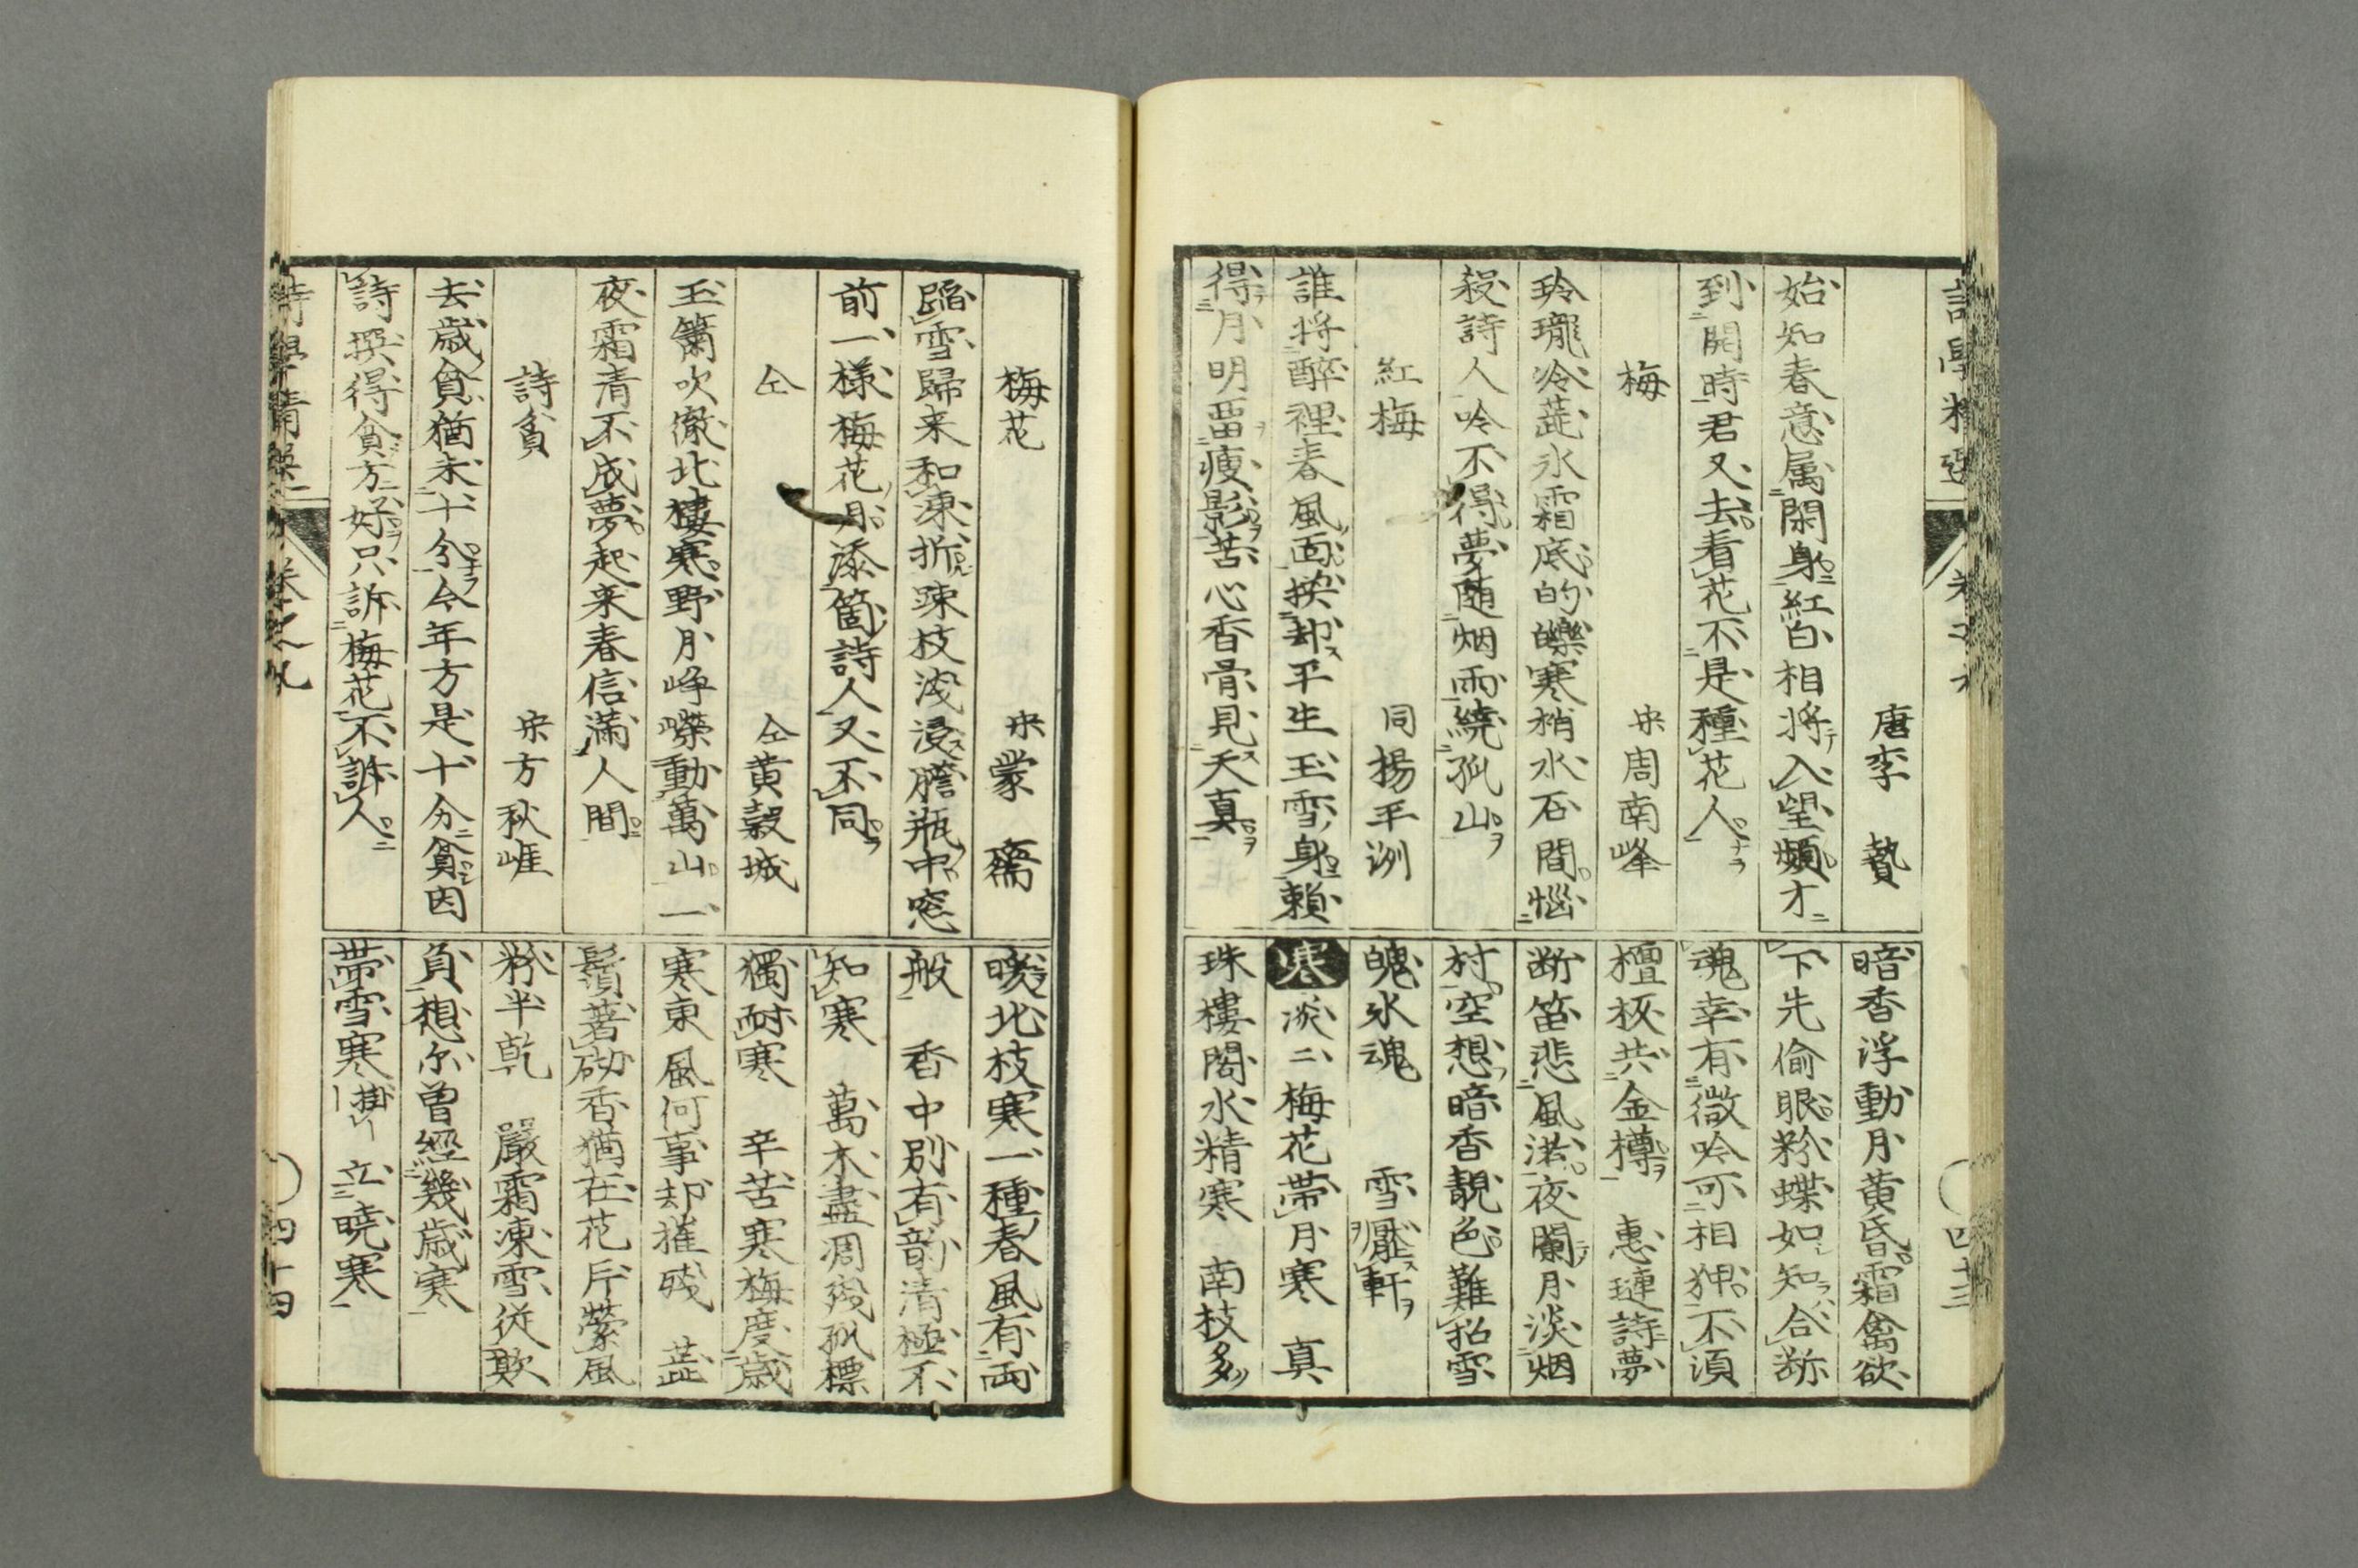 唐李 贄
始知春意属閑身紅白相將入望頻才
到開時君又去看花不是種花人
梅 宋周南峰
玲瓏冷蘂氷霜底的皪寒梢水石間惱
殺詩人吟不得夢隨烟雨繞孤山
紅梅 同楊平洲
誰将醉裡春風面換却平生玉雪身頼
得月明畱瘦影苦心香骨見天真
暗香浮動月黄昏霜禽欲
下先偷眼粉蝶如知合断
魂幸有微吟可相狎不須
檀板共金樽 惠璉詩夢
断笛悲風淡夜闌月淡烟
村空想暗香靚色難招雪
魄氷魂 雪壓軒
寒 淡二梅花帯月寒 真
珠樓閣水精寒 南枝多
四十三
梅花 宋蒙 齋
蹈雪歸来和凍折疎枝浅浸膽瓶中窓
前一様梅花月添箇詩人又不同
仝 仝黄穀城
玉簫吹徹北樓寒野月崢嶸動萬山一
夜霜清不成夢起来春信満人間
詩貧 宋方秋崖
去歳貧猶未十分今年方是十分貧因
詩撰得貧方好只訴梅花不訴人
暖北枝寒一種春風有両
般 香中別有韵清極不
知寒 萬木盡凋殘孤標
獨耐寒 辛苦寒梅度歳
寒東風何事却摧残 蘂
鬚著破香猶在花片縈風
粉半乾 嚴霜凍雪従欺
負想尓曽經幾歳寒
帯雪寒掛 立曉寒
詩學精選 卷之九 四十四